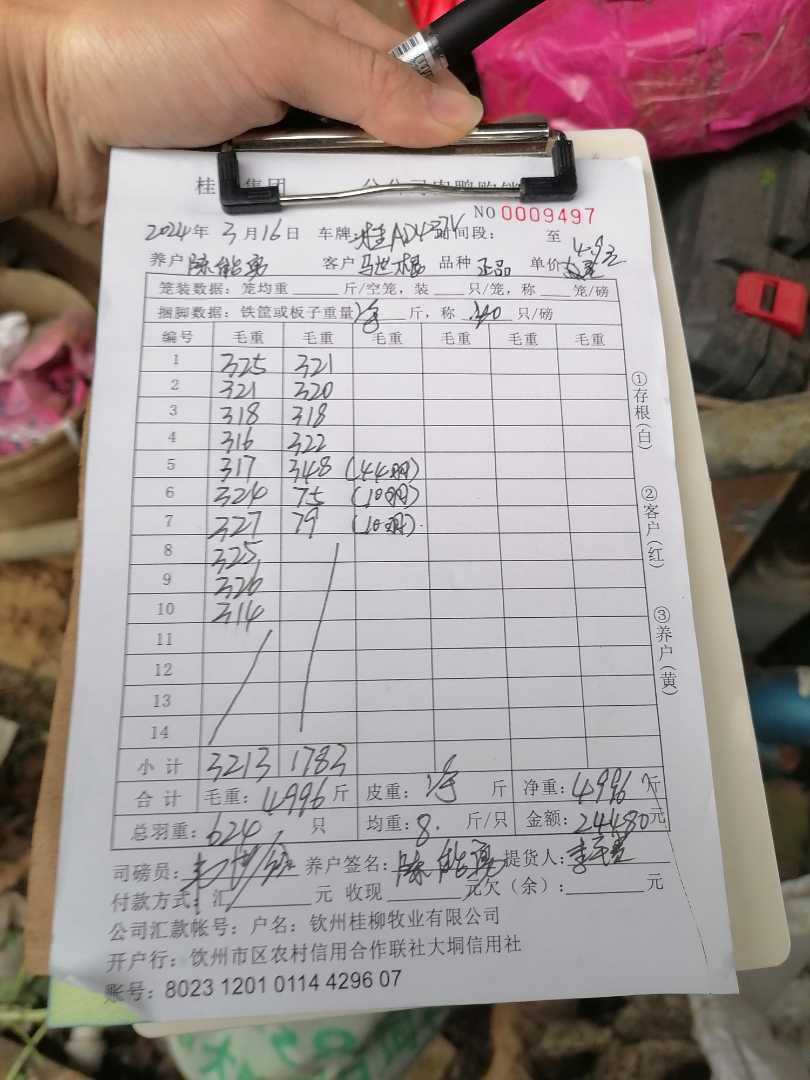 桂 集团
NO 0009497
2024年 3月16日 车牌:桂AD 时间段: 至
养户 陈能勇 客户 马世 品种 正品 单价 4.9元
笼装数据:笼均重 斤/空笼,装 只/笼,称 笼/磅
捆脚数据:铁筐或板子重量 斤,称 只/磅
编号 毛重 毛重 毛重 毛重 毛重 毛重
1 325 321
2 321 320
3 318 318
4 316 322
5 317 348 (44羽)
6 324 75 (10羽)
7 327 79 (10羽)
8 325
9 326
10 314
11
12
13
14
小计 3213 1783
合计 毛重:4996斤 皮重: 斤 净重:4996斤
总羽重:624只 均重:8. 斤/只 金额:24480元
司磅员: 养户签名:陈能勇 提货人:
付款方式:汇 元 收现 元欠(余): 元
公司汇款帐号:户名:钦州桂柳牧业有限公司
开户行:钦州市区农村信用合作联社大垌信用社
账号:8023 1201 0114 4296 07
①存根(白)
②客户(红)
③养户(黄)